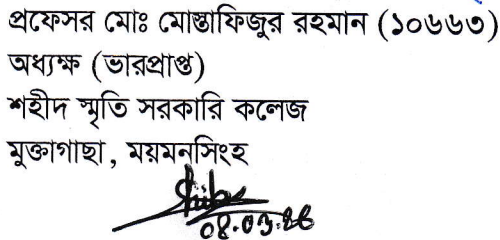 প্রফেসর মোঃ মোস্তাফিজুর রহমান (১০৬৬৩)
অধ্যক্ষ (ভারপ্রাপ্ত)
শহীদ স্মৃতি সরকারি কলেজ
মুক্তাগাছা, ময়মনসিংহ